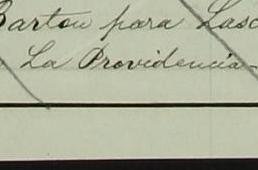 Barton para
La Providencia-